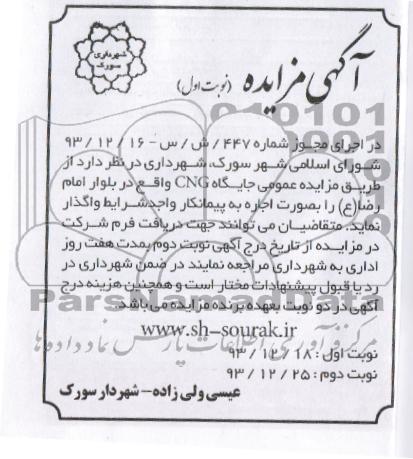 شهرداری
سورک
آگهی مزایده (نوبت اول)
در اجرای مجوز شماره ۴۴۷ / ش / س - ۱۶ / ۱۲ / ۹۳
شورای اسلامی شهر سورک، شهرداری در نظر دارد از
طریق مزایده عمومی جایگاه CNG واقع در بلوار امام
رضا(ع) را بصورت اجاره به پیمانکار واجد شرایط واگذار
نماید. متقاضیان می توانند جهت دریافت فرم شرکت
در مزایده از تاریخ درج آگهی نوبت دوم بمدت هفت روز
اداری به شهرداری مراجعه نمایند در ضمن شهرداری در
رد یا قبول پیشنهادات مختار است و همچنین هزینه درج
آگهی در دو نوبت بعهده برنده مزایده می باشد.
www.sh-sourak.ir
نوبت اول : ۱۸ / ۱۲ / ۹۳
نوبت دوم : ۲۵ / ۱۲ / ۹۳
عیسی ولی زاده - شهردار سورک